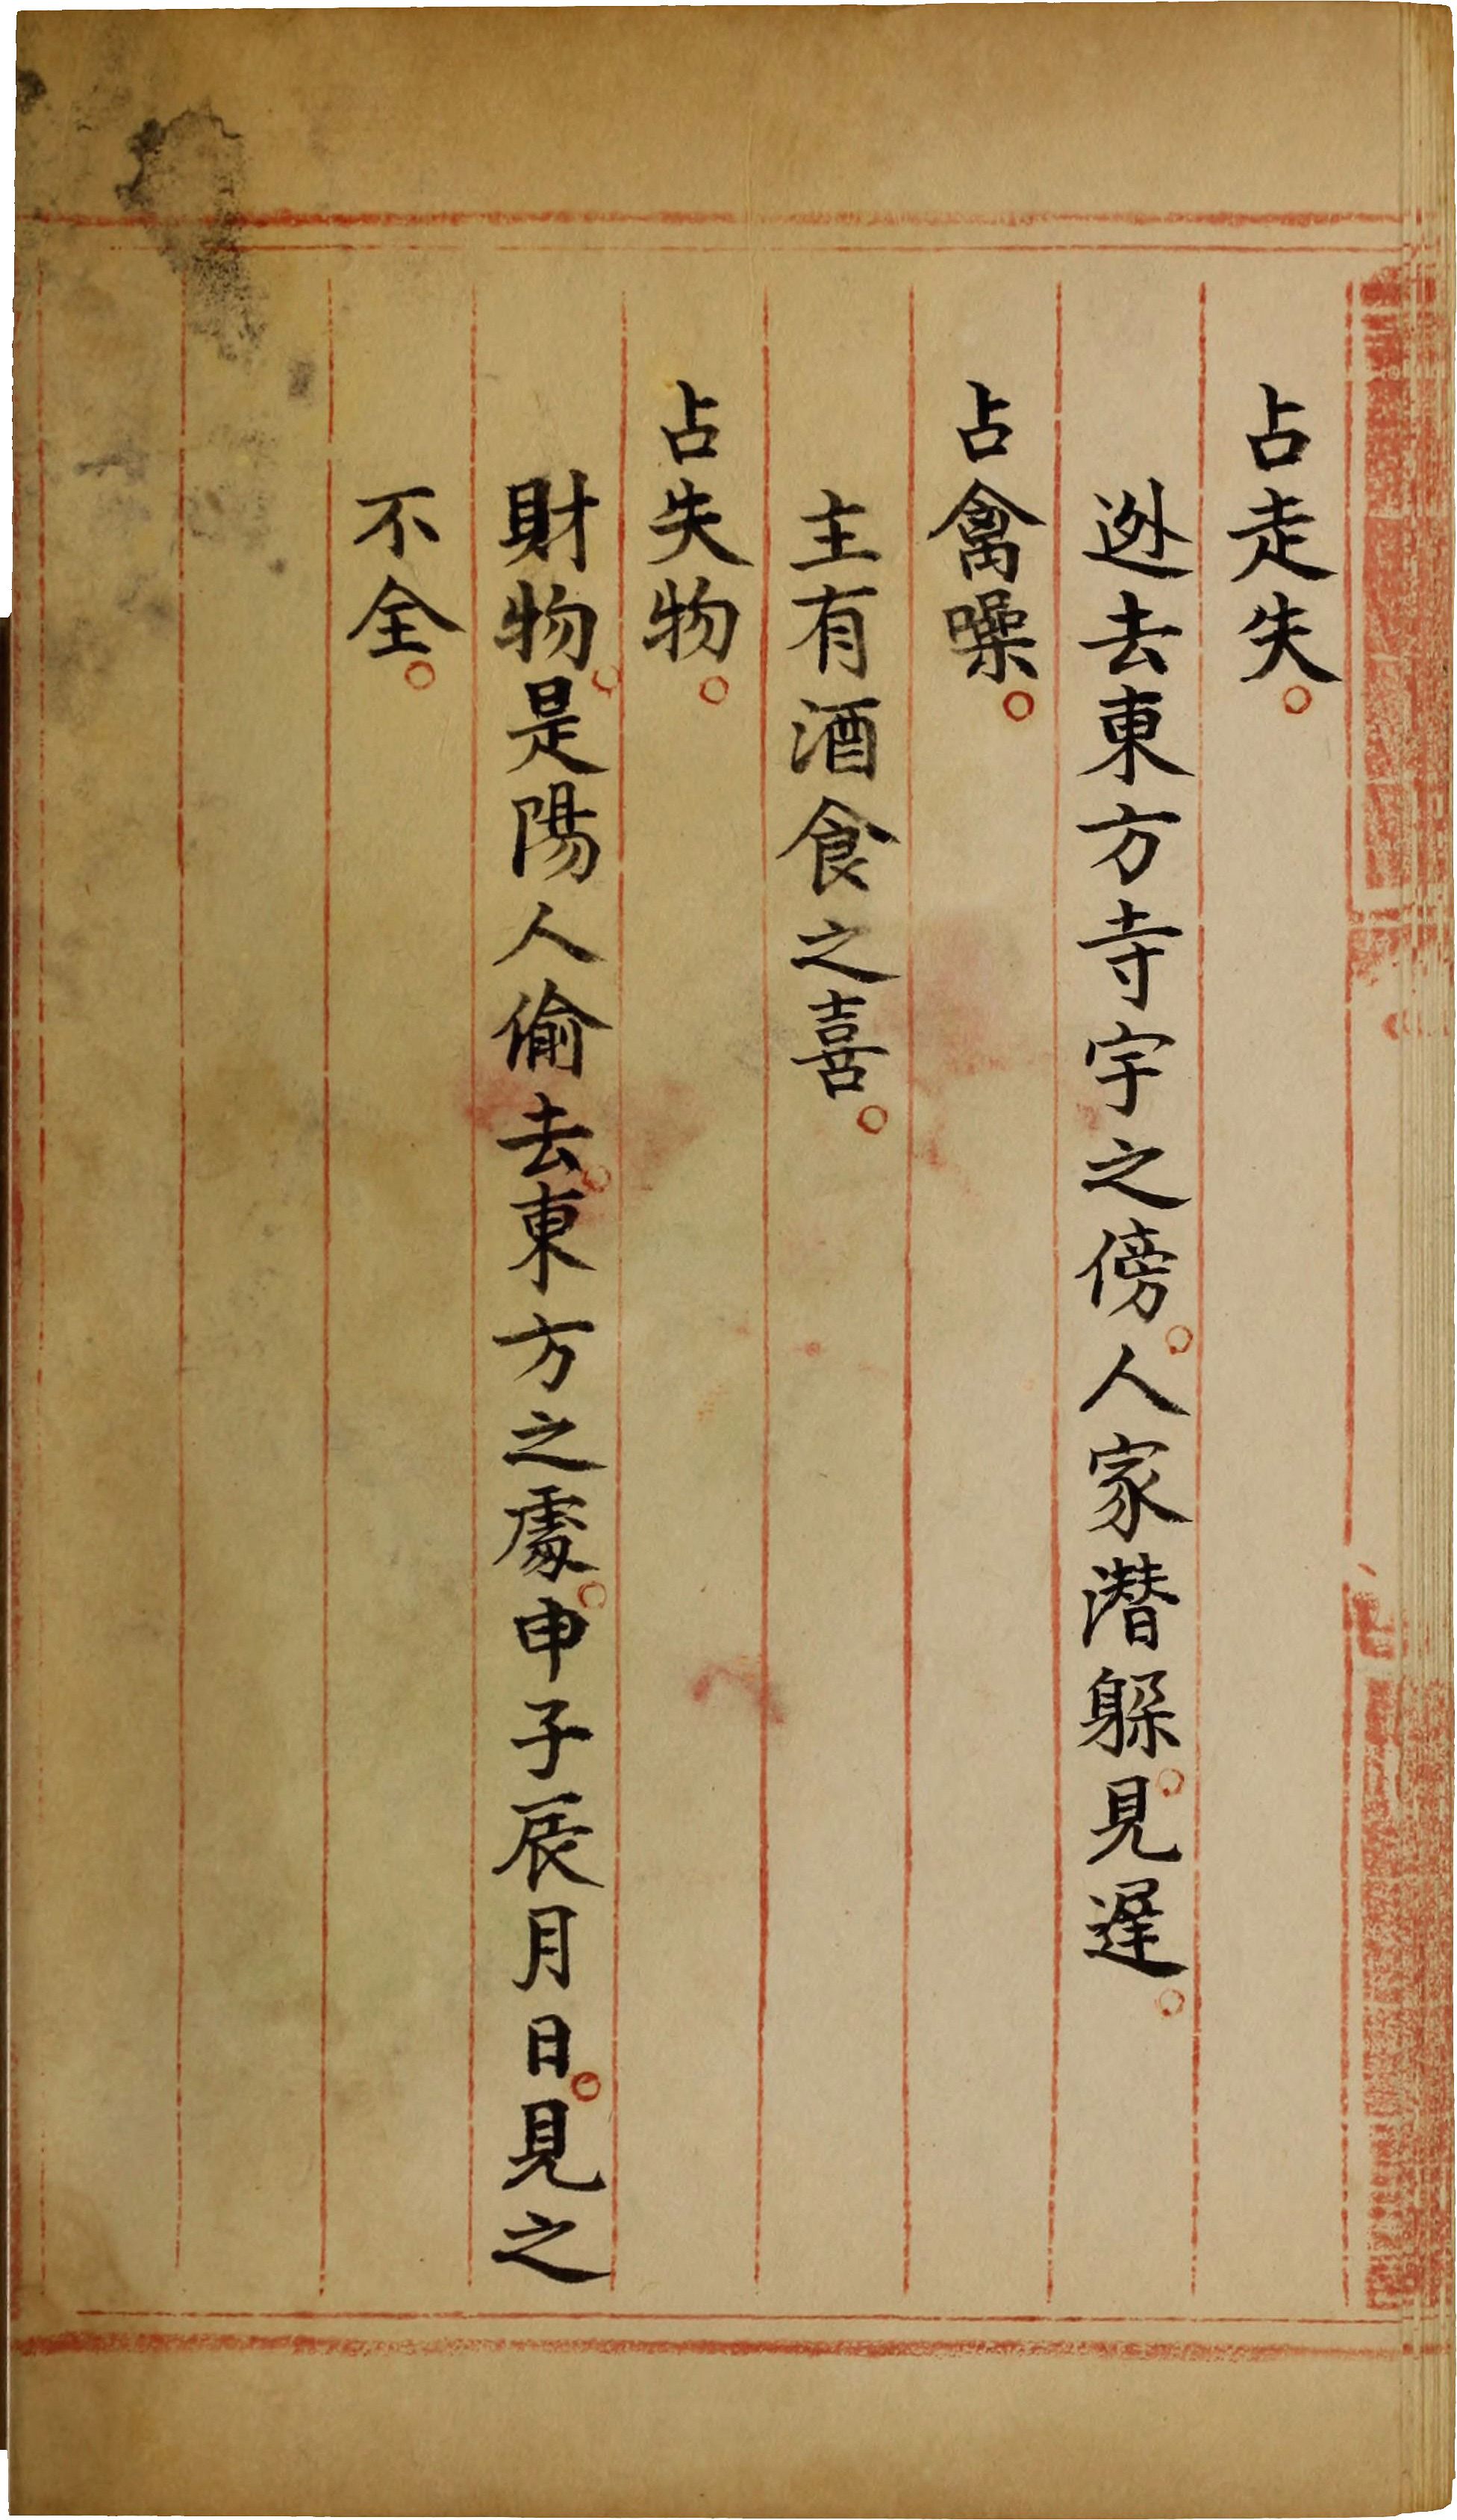 占走失。
逃去東方寺宇之傍。人家潛躲。見遲。
占禽噪。
主有酒食之喜。
占失物。
財物。是陽人偷去。東方之處。申子辰月日。見之
不全。